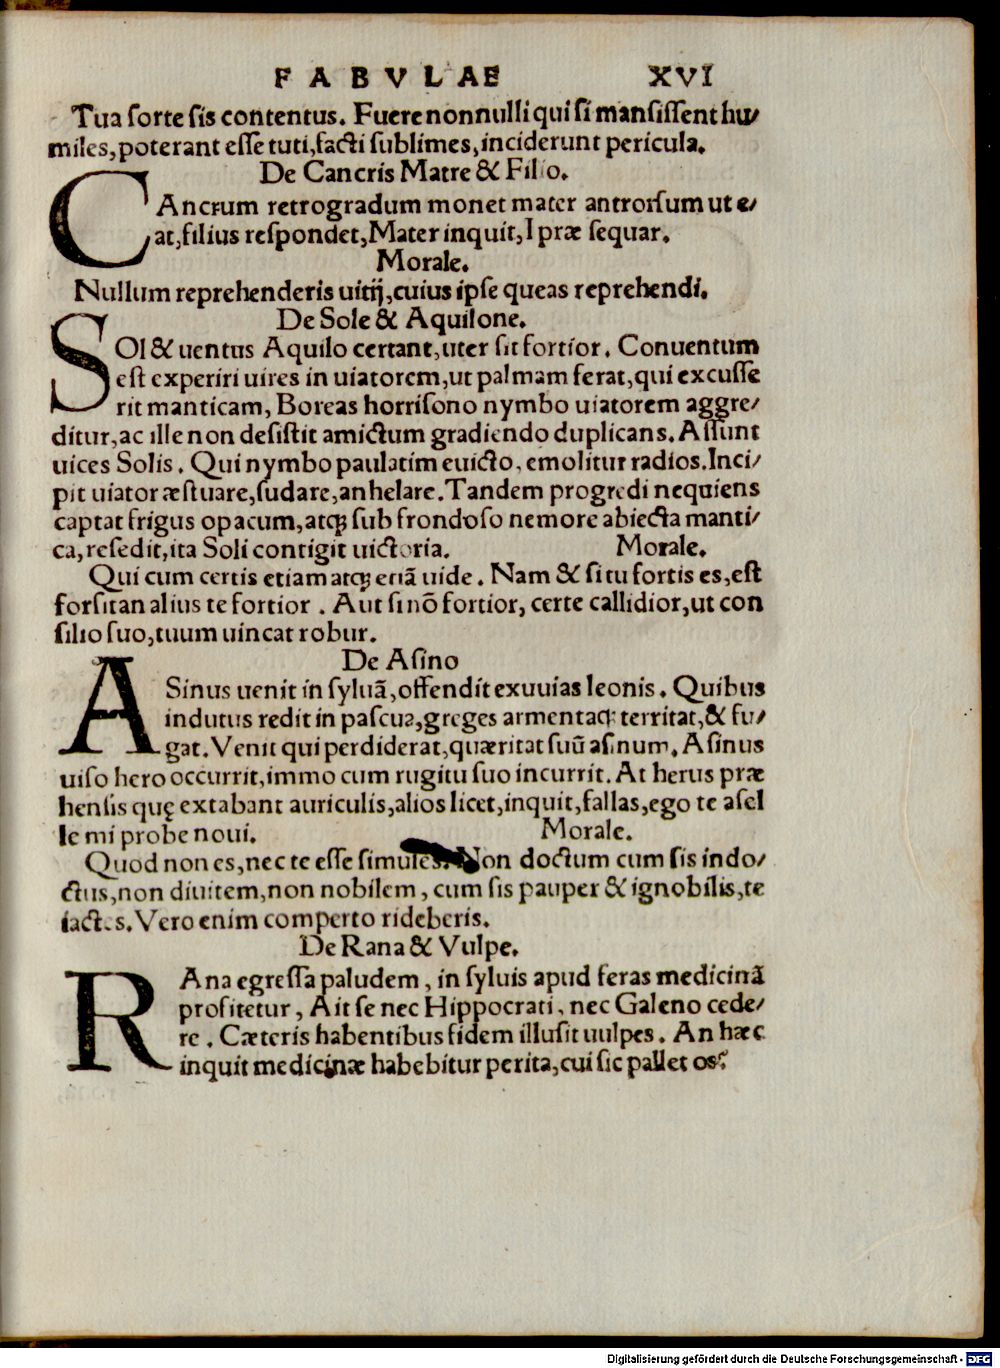 FABVLAE XVI
Tua sorte sis contentus. Fuere nonnulli qui si mansissent hu/
miles, poterant esse tuti, facti sublimes, inciderunt pericula.
De Cancris Matre & Filio.
CAncrum retrogradum monet mater antrorsum ut e/
at, filius respondet, Mater inquit, I præ sequar.
Morale.
Nullum reprehenderis uitij, cuius ipse queas reprehendi.
De Sole & Aquilone.
SOl & uentus Aquilo certant, uter sit fortior. Conuentum
est experiri uires in uiatorem, ut palmam ferat, qui excusse
rit manticam, Boreas horrisono nymbo uiatorem aggre/
ditur, ac ille non desistit amictum gradiendo duplicans. Assunt
uices Solis. Qui nymbo paulatim euicto, emolitur radios. Inci/
pit uiator æstuare, sudare, anhelare. Tandem progredi nequiens
captat frigus opacum, atqꝫ sub frondoso nemore abiecta manti/
ca, resedit, ita Soli contigit uictoria. Morale.
Qui cum certis etiam atqꝫ etiã uide. Nam & si tu fortis es, est
forsitan alius te fortior. Aut si nõ fortior, certe callidior, ut con
silio suo, tuum uincat robur.
De Asino
ASinus uenit in syluã, offendit exuuias leonis. Quibus
indutus redit in pascua, greges armentaqꝫ territat, & fu/
gat. Venit qui perdiderat, quæritat suũ asinum. Asinus
uiso hero occurrit, immo cum rugitu suo incurrit. At herus præ
hensis quę extabant auriculis, alios licet, inquit, fallas, ego te asel
le mi probe noui. Morale.
Quod non es, nec te esse simules. Non doctum cum sis indo/
ctus, non diuitem, non nobilem, cum sis pauper & ignobilis, te
iactes. Vero enim comperto rideberis.
De Rana & Vulpe.
RAna egressa paludem, in syluis apud feras medicinã
profitetur, Ait se nec Hippocrati, nec Galeno cede/
re. Cæteris habentibus fidem illusit uulpes. An hæc
inquit medicinæ habebitur perita, cui sic pallet os?
Digitalisierung gefördert durch die Deutsche Forschungsgemeinschaft - DFG